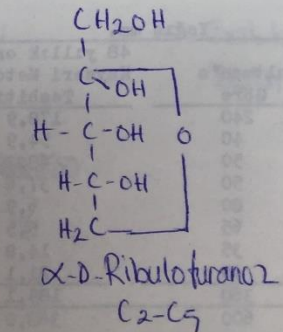 CH2OH
C OH
H - C - OH O
H - C - OH
H2C
α-D-Ribulofuranoz
C2-C5